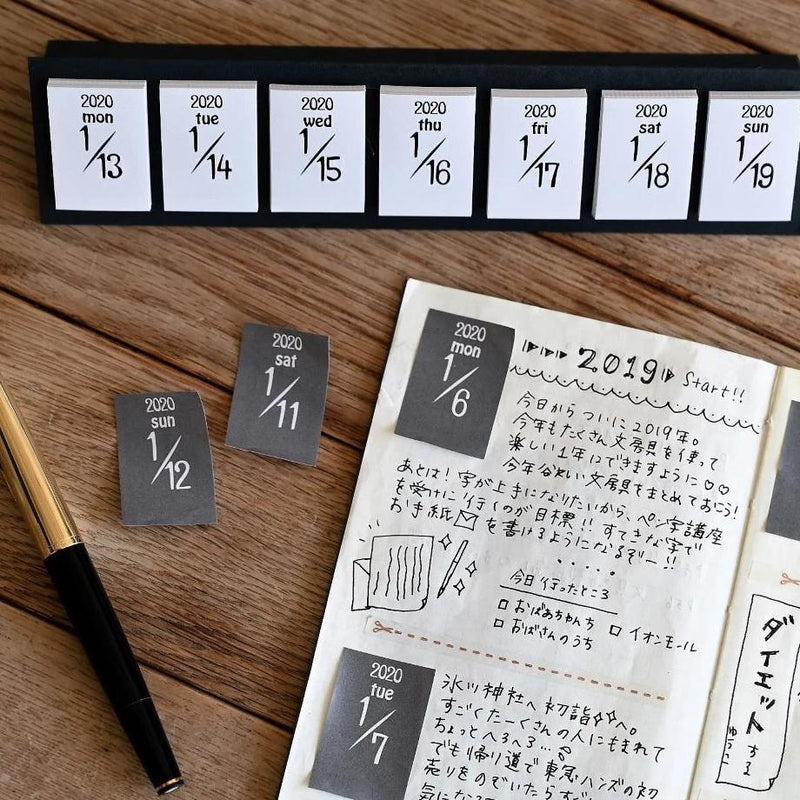 2020
mon
1/13
2020
tue
1/14
2020
wed
1/15
2020
thu
1/16
2020
fri
1/17
2020
sat
1/18
2020
sun
1/19
2020
sat
1/11
2020
sun
1/12
2020
mon
1/6
2019 Start!!
今日からついに2019年。
今年もたくさん文房具を使って
楽しい1年にできますように♡♡
今年欲しい文房具をまとめておこう!
あとは!字が上手になりたいから、ペン字講座
を受けに行くのが目標!!すてきな字で
お手紙を書けるようになるぞー!!
今日行ったところ
□おばあちゃんち
□おばさんのうち □イオンモール
2020
tue
1/7
氷川神社へ初詣へ。
すごくたーくさんの人にもまれて
ちょっとへろへろ…
でも帰り道で東急ハンズの初
売りをのぞいたらすご
気に
ダイエットする